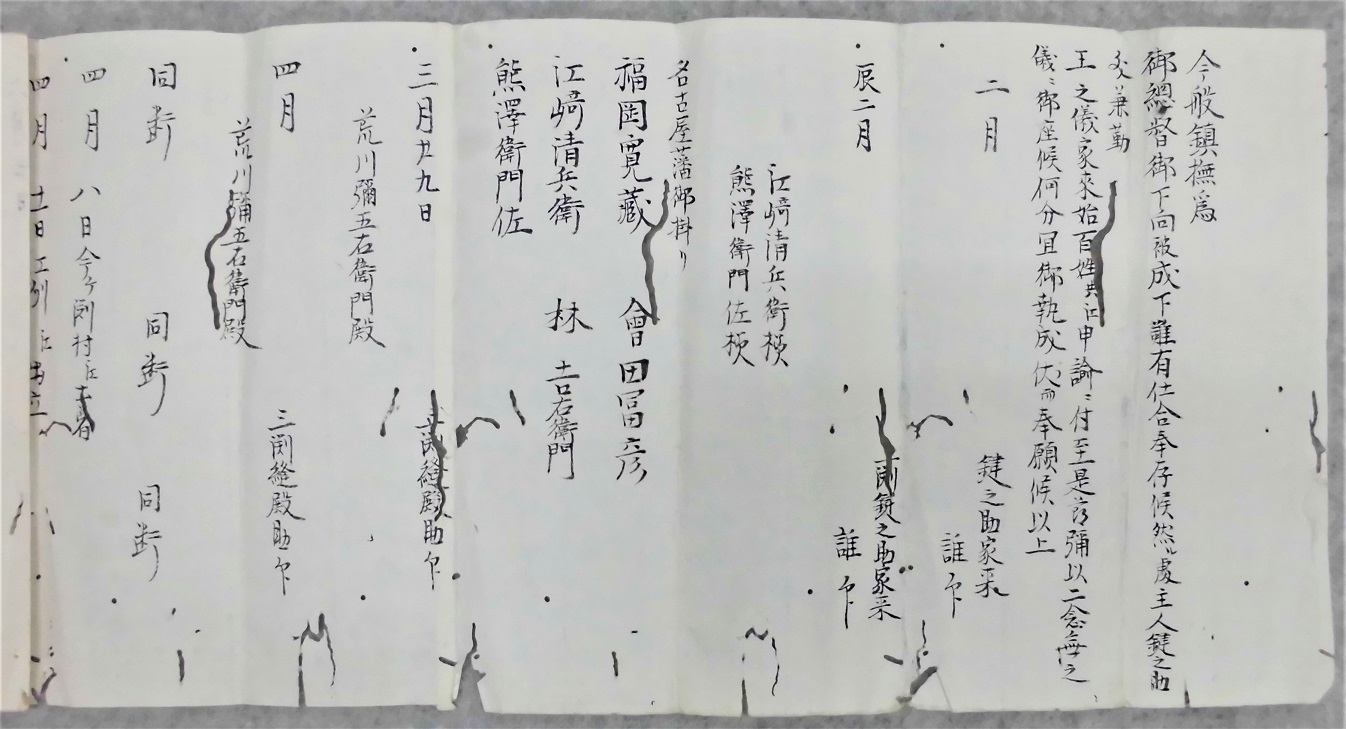 今般鎮撫為
御總督御下向被成下難有仕合奉存候然ル處主人鍵之助
兼勤
王之儀家来始百姓共江申諭ニ付至是節彌以二念無之
儀ニ御座候何分宜御執成伏而奉願候以上
二月
鍵之助家来
誰印
辰二月
鍵之助家来
誰印
江﨑清兵衛様
熊澤衛門佐様
名古屋藩御掛り
福岡寛藏
會田冨彦
江﨑清兵衛
林吉右衛門
熊澤衛門佐
三月廿九日
三渕縫殿助印
荒川彌五右衛門殿
四月
三渕縫殿助印
荒川彌五右衛門殿
同断
同断
同断
四月八日
四月